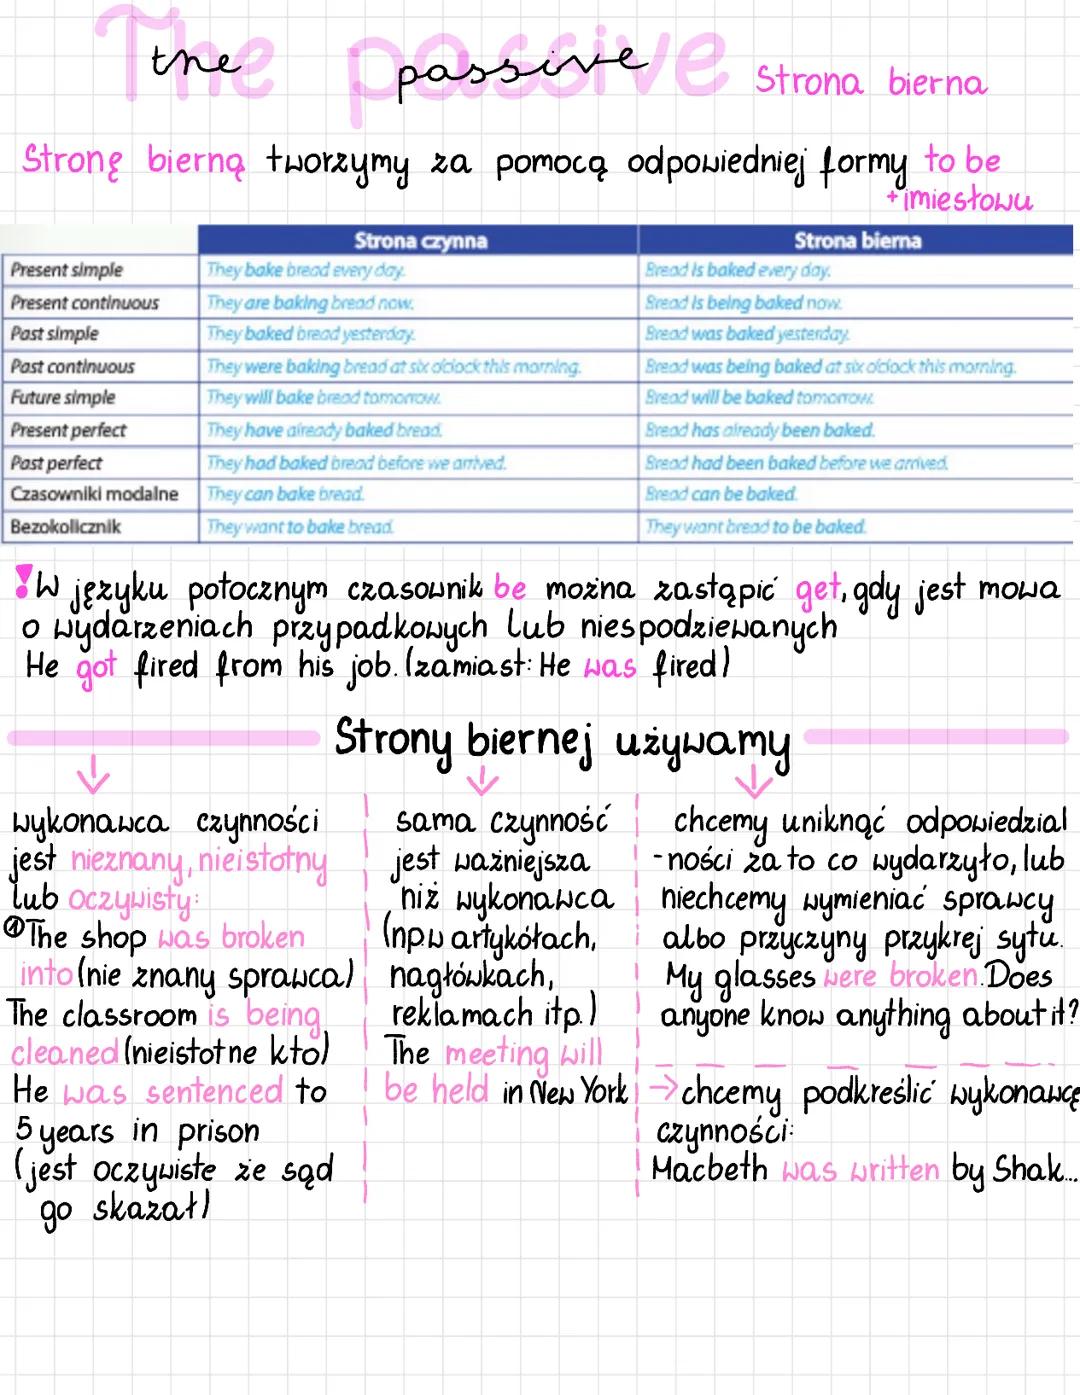 The passive
the passive Strona bierna
Stronę bierną tworzymy za pomocą odpowiedniej formy to be
+imiesłowu
Strona czynna Strona bierna
Present simple They bake bread every day. Bread is baked every day.
Present continuous They are baking bread now. Bread is being baked now.
Past simple They baked bread yesterday. Bread was baked yesterday.
Past continuous They were baking bread at six o'clock this morning. Bread was being baked at six o'clock this morning.
Future simple They will bake bread tomorrow. Bread will be baked tomorrow.
Present perfect They have already baked bread. Bread has already been baked.
Past perfect They had baked bread before we arrived. Bread had been baked before we arrived.
Czasowniki modalne They can bake bread. Bread can be baked.
Bezokolicznik They want to bake bread. They want bread to be baked.
! W języku potocznym czasownik be można zastąpić get, gdy jest mowa
o wydarzeniach przypadkowych lub niespodziewanych
He got fired from his job. (zamiast: He was fired)
Strony biernej używamy
wykonawca czynności
jest nieznany, nieistotny
lub oczywisty:
① The shop was broken
into (nie znany sprawca)
The classroom is being
cleaned (nieistotne kto)
He was sentenced to
5 years in prison
(jest oczywiste że sąd
go skazał)
sama czynność
jest ważniejsza
niż wykonawca
(np w artykółach,
nagłówkach,
reklamach itp.)
The meeting will
be held in New York
chcemy uniknąć odpowiedzial
-ności za to co wydarzyło, lub
niechcemy wymieniać sprawcy
albo przyczyny przykrej sytu.
My glasses were broken. Does
anyone know anything about it?
→ chcemy podkreślić wykonawcę
czynności:
Macbeth was written by Shak...